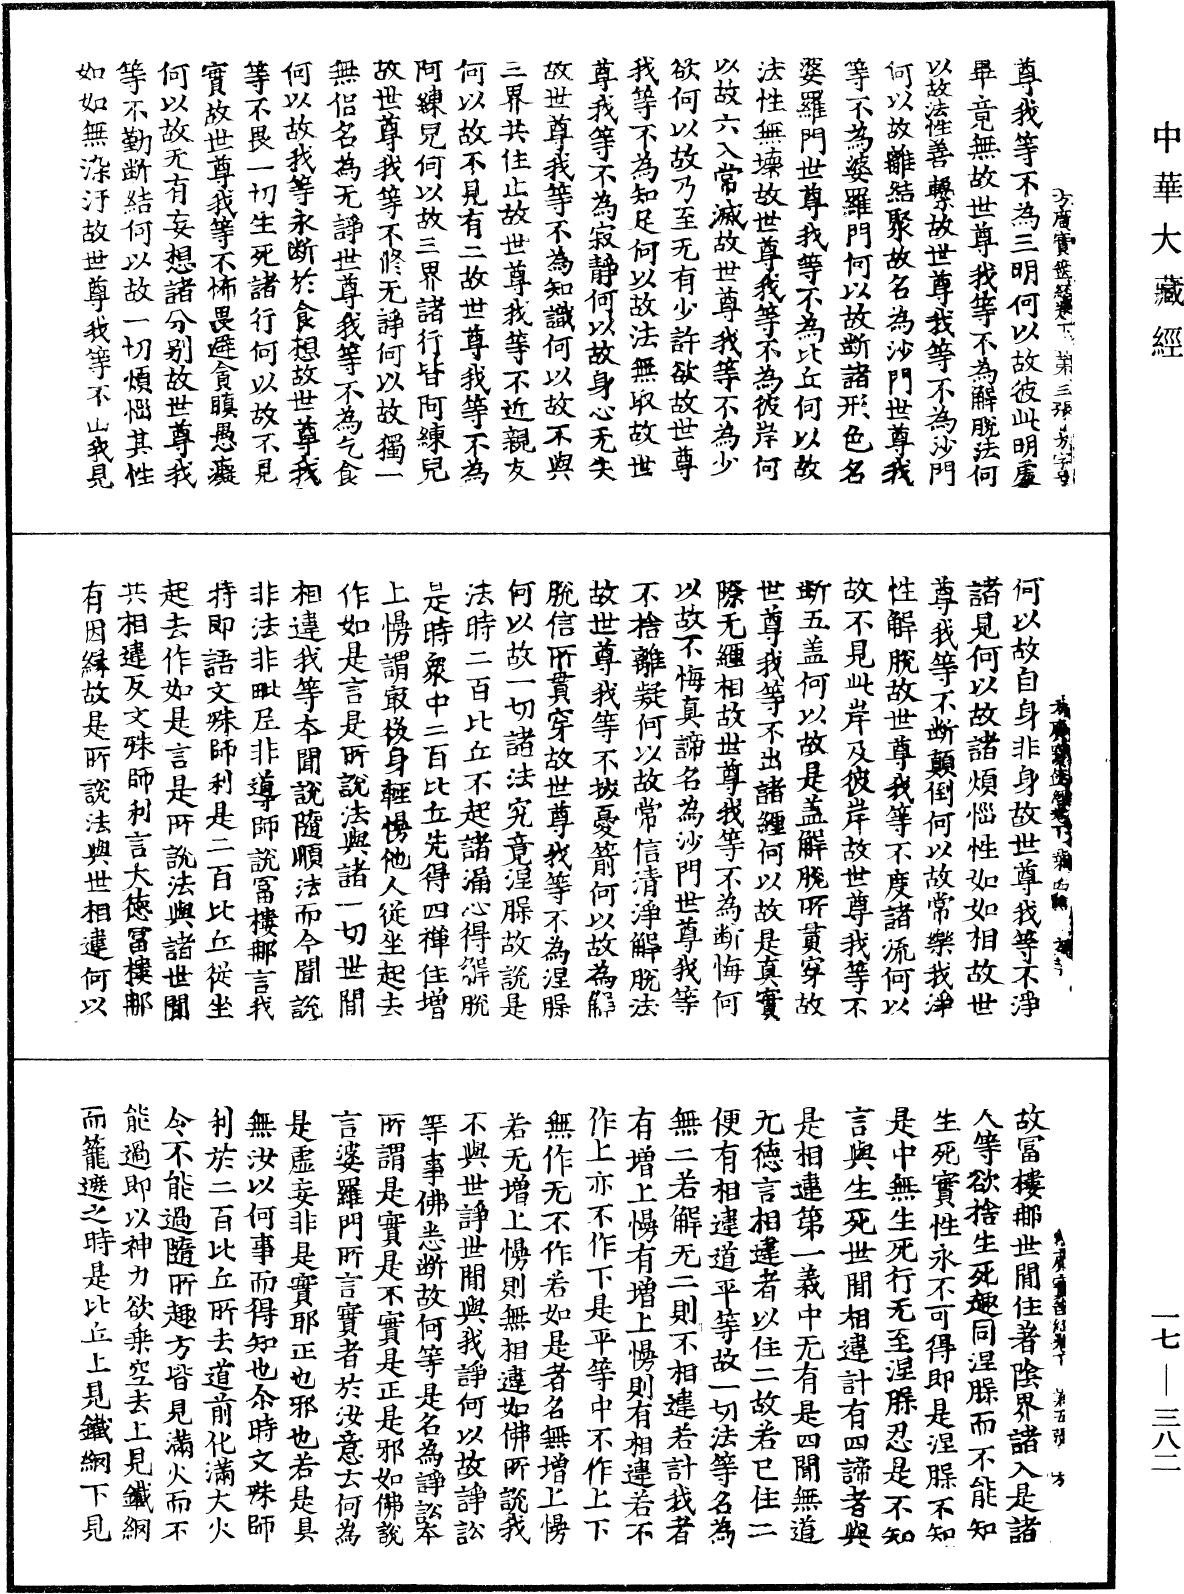 中華大藏經
尊我等不為三明何以故彼此明處
畢竟無故世尊我等不為解脫法何
以故法性善轉故世尊我等不為沙門
何以故離結聚故名為沙門世尊我
等不為婆羅門何以故斷諸形色名
婆羅門世尊我等不為比丘何以故
法性無壞故世尊我等不為彼岸何
以故六入常滅故世尊我等不為少
欲何以故乃至无有少許欲故世尊
我等不為知足何以故法無取故世
尊我等不為寂靜何以故身心无失
故世尊我等不為知識何以故不與
三界共住止故世尊我等不近親友
何以故不見有二故世尊我等不為
阿練兒何以故三界諸行皆阿練兒
故世尊我等不修无諍何以故獨一
無侶名為无諍世尊我等不為乞食
何以故我等永斷於食想故世尊我
等不畏一切生死諸行何以故不見
實故世尊我等不怖畏避貪瞋愚癡
何以故无有妄想諸分別故世尊我
等不勤斷結何以故一切煩惱其性
如如無染汙故世尊我等不山我見
何以故自身非身故世尊我等不淨
諸見何以故諸煩惱性如如相故世
尊我等不斷顛倒何以故常樂我淨
性解脫故世尊我等不度諸流何以
故不見此岸及彼岸故世尊我等不
斷五盖何以故是盖解脫所貫穿故
世尊我等不出諸纏何以故是真實
際无纏相故世尊我等不為斷悔何
以故不悔真諦名為沙門世尊我等
不捨離疑何以故常信清淨解脫法
故世尊我等不拔憂箭何以故為解
脫信所貫穿故世尊我等不為涅槃
何以故一切諸法究竟涅槃故說是
法時二百比丘不起諸漏心得解脫
是時眾中二百比丘先得四禪住增
上慢謂最後身輕慢他人從坐起去
作如是言是所說法與諸一切世間
相違我等本聞說隨順法而今聞說
非法非毗尼非導師說富樓那言我
持即語文殊師利是二百比丘從坐
起去作如是言是所說法與諸世間
共相違反文殊師利言大德富樓那
有因緣故是所說法與世相違何以
故富樓那世間住著陰界諸入是諸
人等欲捨生死趣同涅槃而不能知
生死實性永不可得即是涅槃不知
是中無生死行无至涅槃忍是不知
言與生死世間相違計有四諦者與
是相違第一義中无有是四聞無道
无德言相違者以住二故若已住二
便有相違道平等故一切法等名為
無二若解无二則不相違若計我者
有增上慢有增上慢則有相違若不
作上亦不作下是平等中不作上下
無作无不作若如是者名無增上慢
若无增上慢則無相違如佛所說我
不與世諍世間與我諍何以故諍訟
等事佛悉斷故何等是名為諍訟本
所謂是實是不實是正是邪如佛說
言婆羅門所言實者於汝意云何為
是虛妄非是實耶正也邪也若是具
無汝以何事而得知也尒時文殊師
利於二百比丘所去道前化滿大火
令不能過隨所趣方皆見滿火而不
能過即以神力欲乗空去上見鐵網
而籠遮之時是比丘上見鐵網下見
一七—三八二